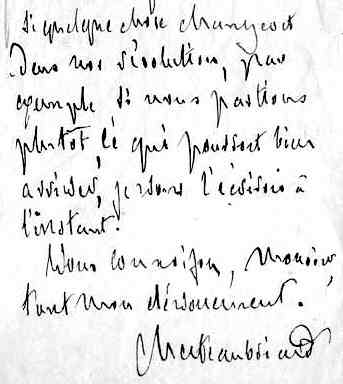 si quelque chose changeoit
dans nos résolutions, par
exemple si nous partions
plutôt ce qui pourroit bien
arriver, je vous l'écrirois à
l'instant.
Vous connoissez, Monsieur,
tout mon dévouement.
Chateaubriand